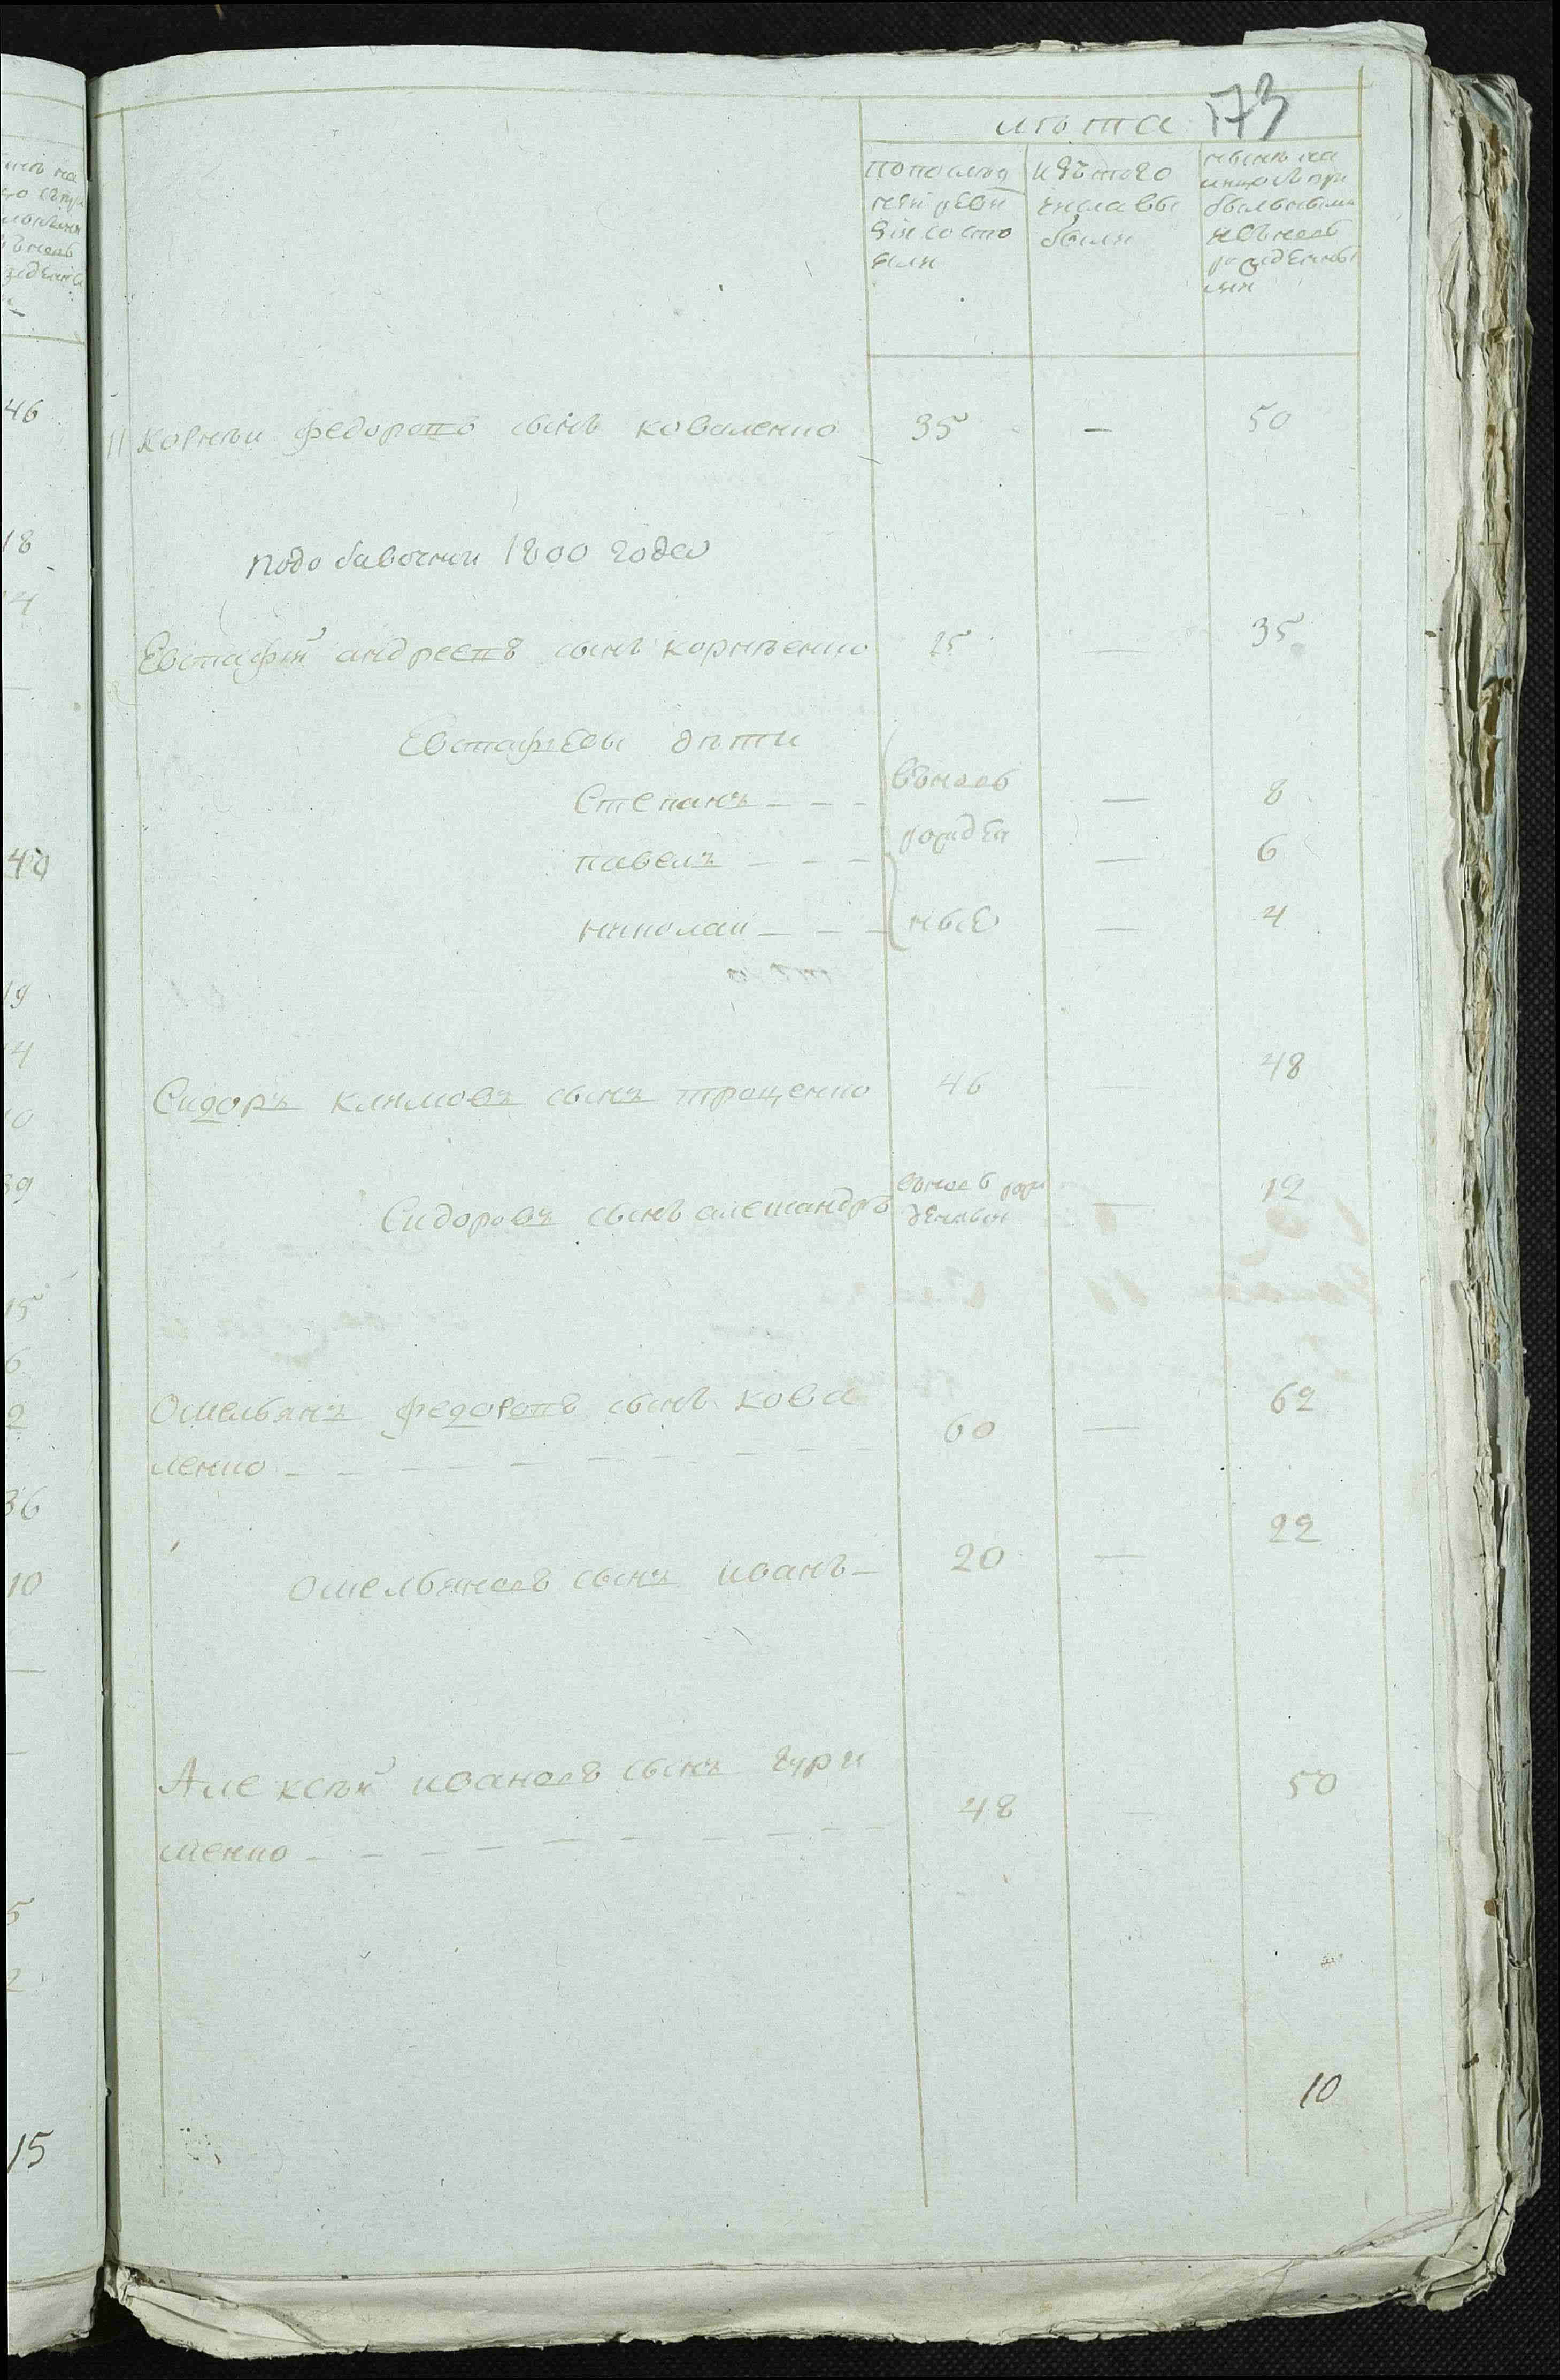 173
лѣта
попослѣд
ней реви
зіи состо
яли
изъ того
числа вы
были
нынѣ на
лицо съ при
былыми
и въновь
рожденны
ми
11 Корнѣи федоровъ сынъ коваленко 35 — 50
подобавочнои 1800 года
Евстафей андреевъ сынъ корнѣенко 25 — 35
Евстафіевы дѣти
Степанъ - - - въновь — 8
павелъ - - - рожден — 6
николаи - - - ные — 4
Сидоръ климовъ сынъ троценко 46 — 48
Сидоровъ сынъ александръ въновь рож — 12
денныи
Омельянъ федоровъ сынъ кова
ленко - - - - - - - - 60 — 62
омельяновъ сынъ иванъ - 20 — 22
Алексѣй ивановъ сынъ
менко - - - - - - - - 48 — 50
10
46
18
4
40
19
4
10
39
15
6
2
36
10
5
2
15